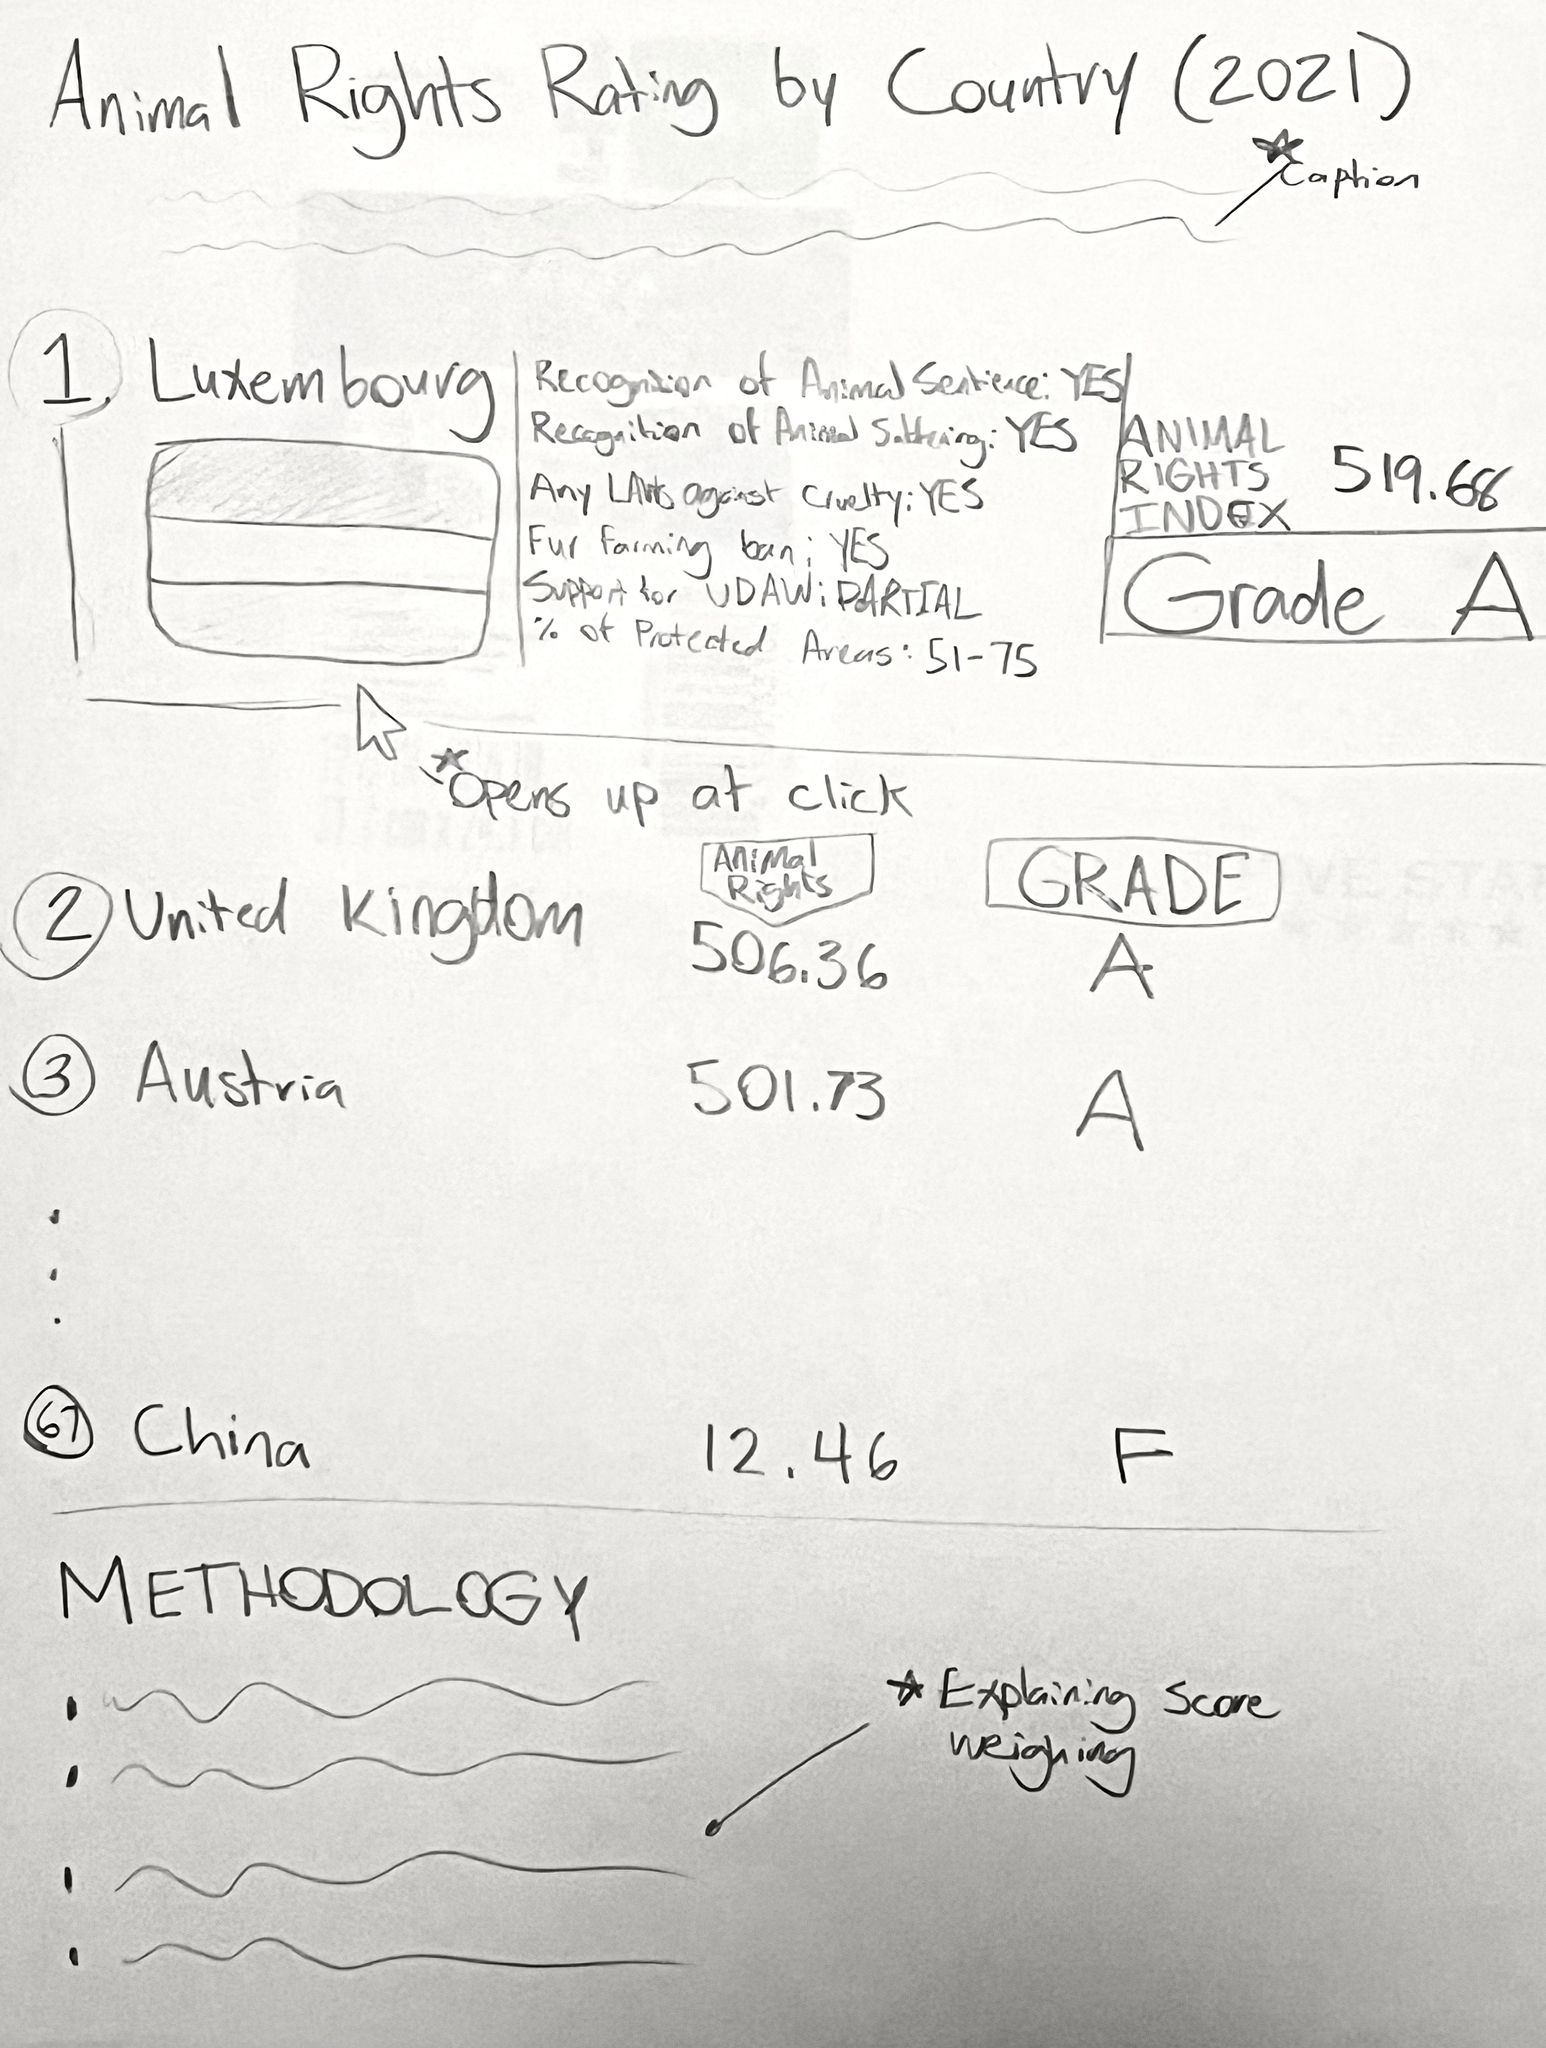 Animal Rights Rating by Country (2021)
Caption
1. Luxembourg
Recognition of Animal Sentience: YES
Recognition of Animal Suffering: YES
Any LAWs against Cruelty: YES
Fur Farming ban: YES
Support for UDAW: PARTIAL
% of Protected Areas: 51-75
ANIMAL
RIGHTS
INDEX
519.68
Grade A
Opens up at click
Animal
Rights
GRADE
2 United Kingdom 506.36 A
3 Austria 501.73 A
67 China 12.46 F
METHODOLOGY
Explaining Score
weighing